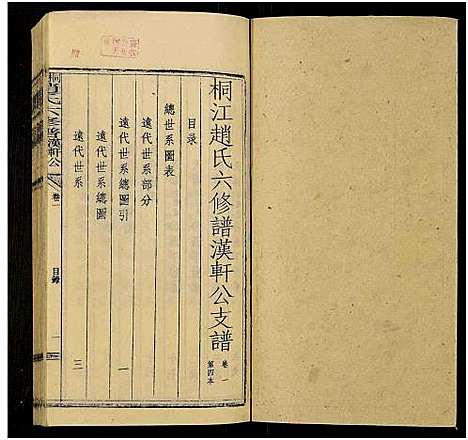 桐江趙氏六修譜漢軒公支譜
卷一
第四本
目录
總世系圖表
遠代世系部分
遠代世系總圖引 一
遠代世系總圖
遠代世系 三
卷一
目錄
一